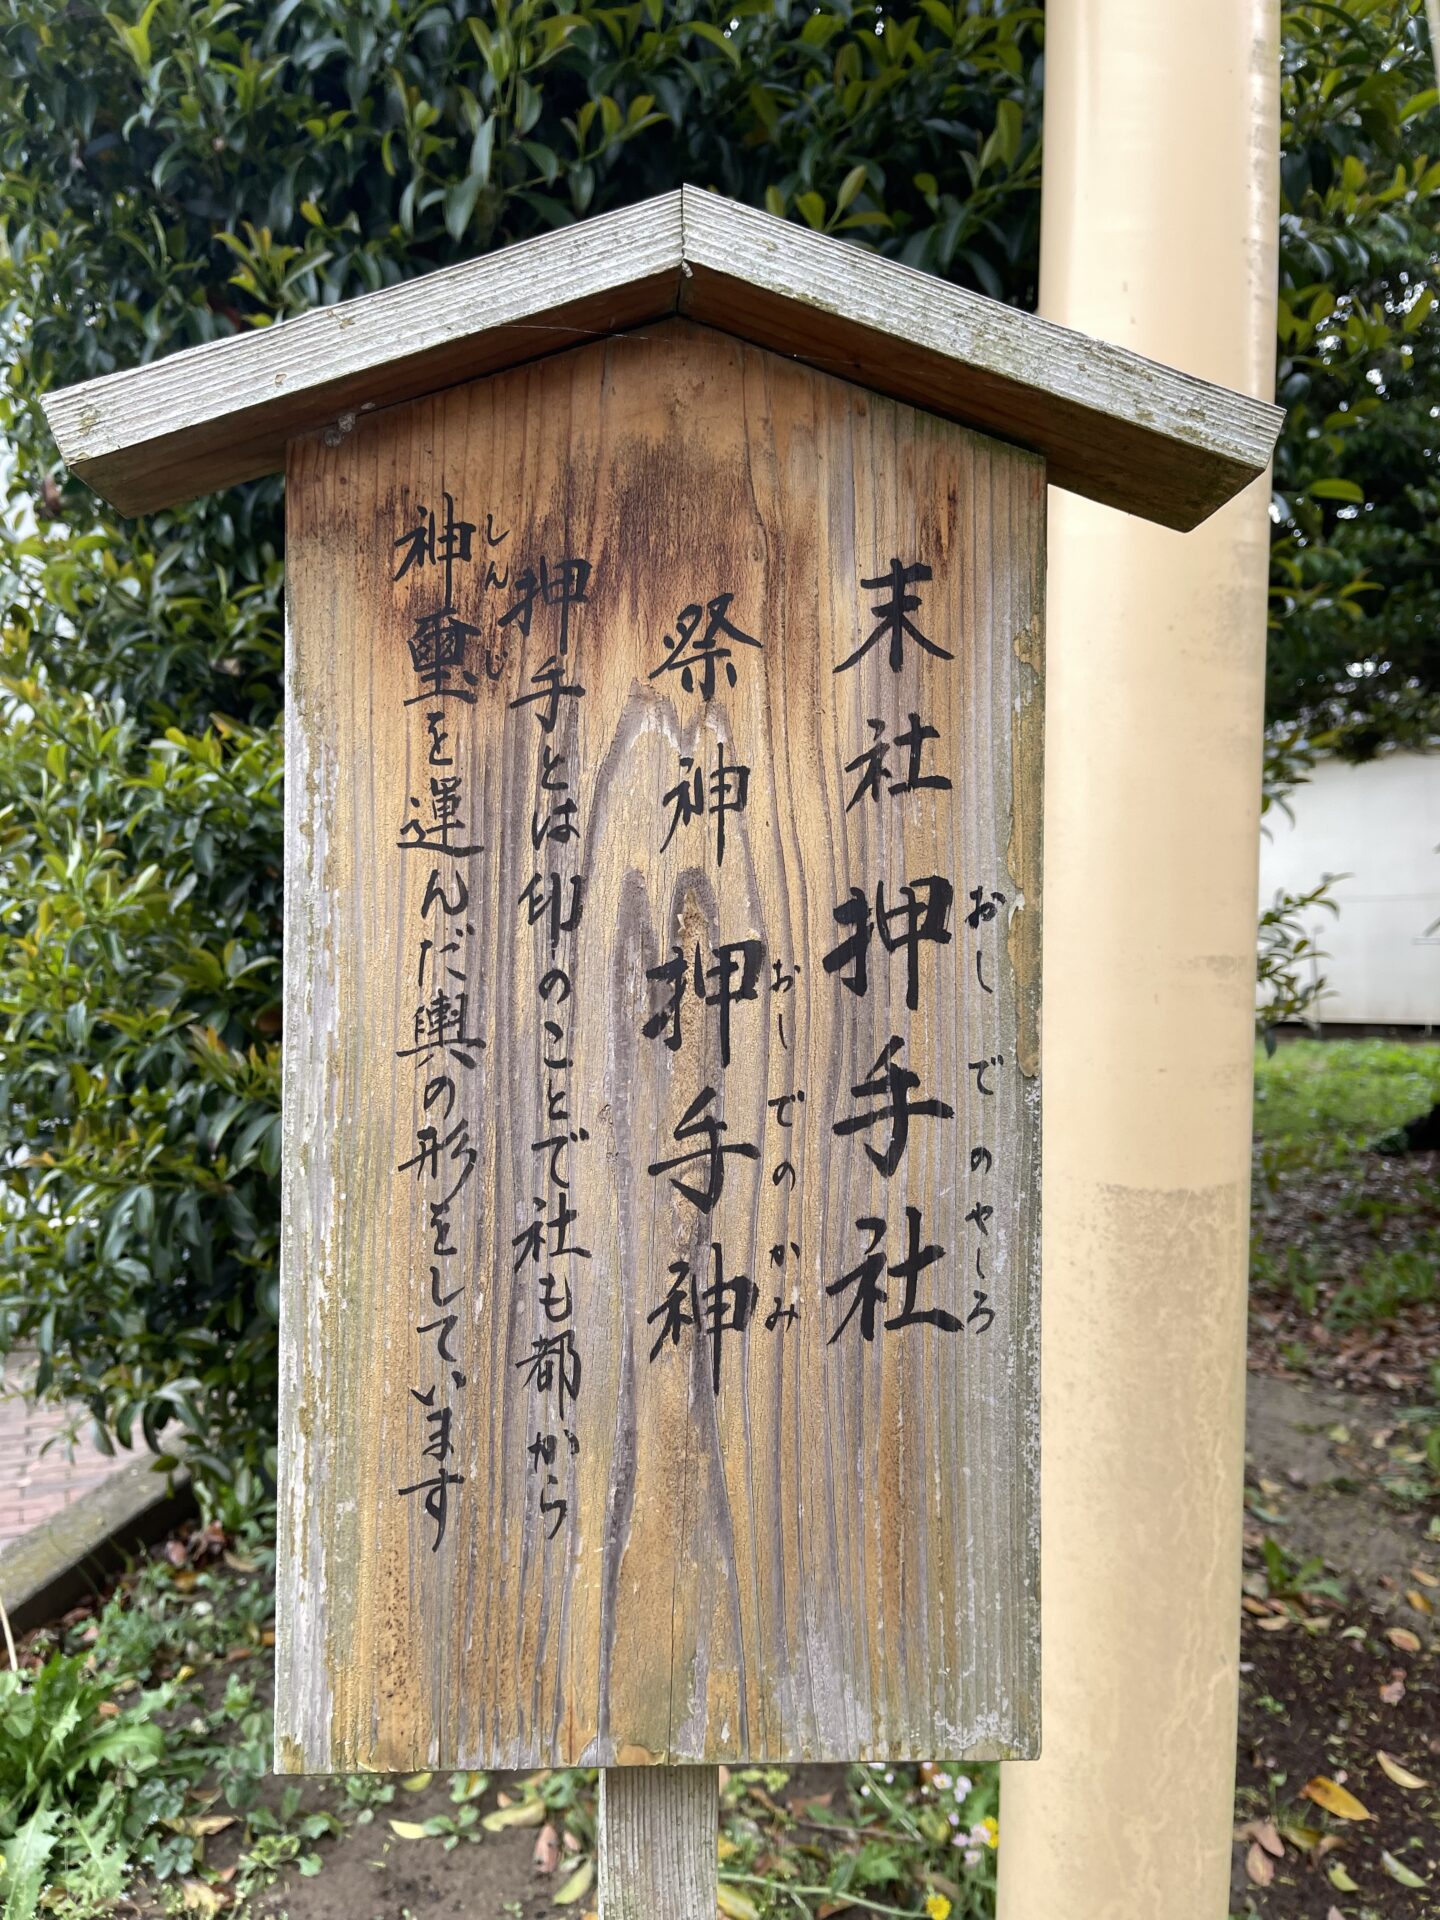 末社 押手社
おしでのやしろ
祭神 押手神
おしでのかみ
押手とは印のことで社も都から
神璽を運んだ輿の形をしています
しんじ